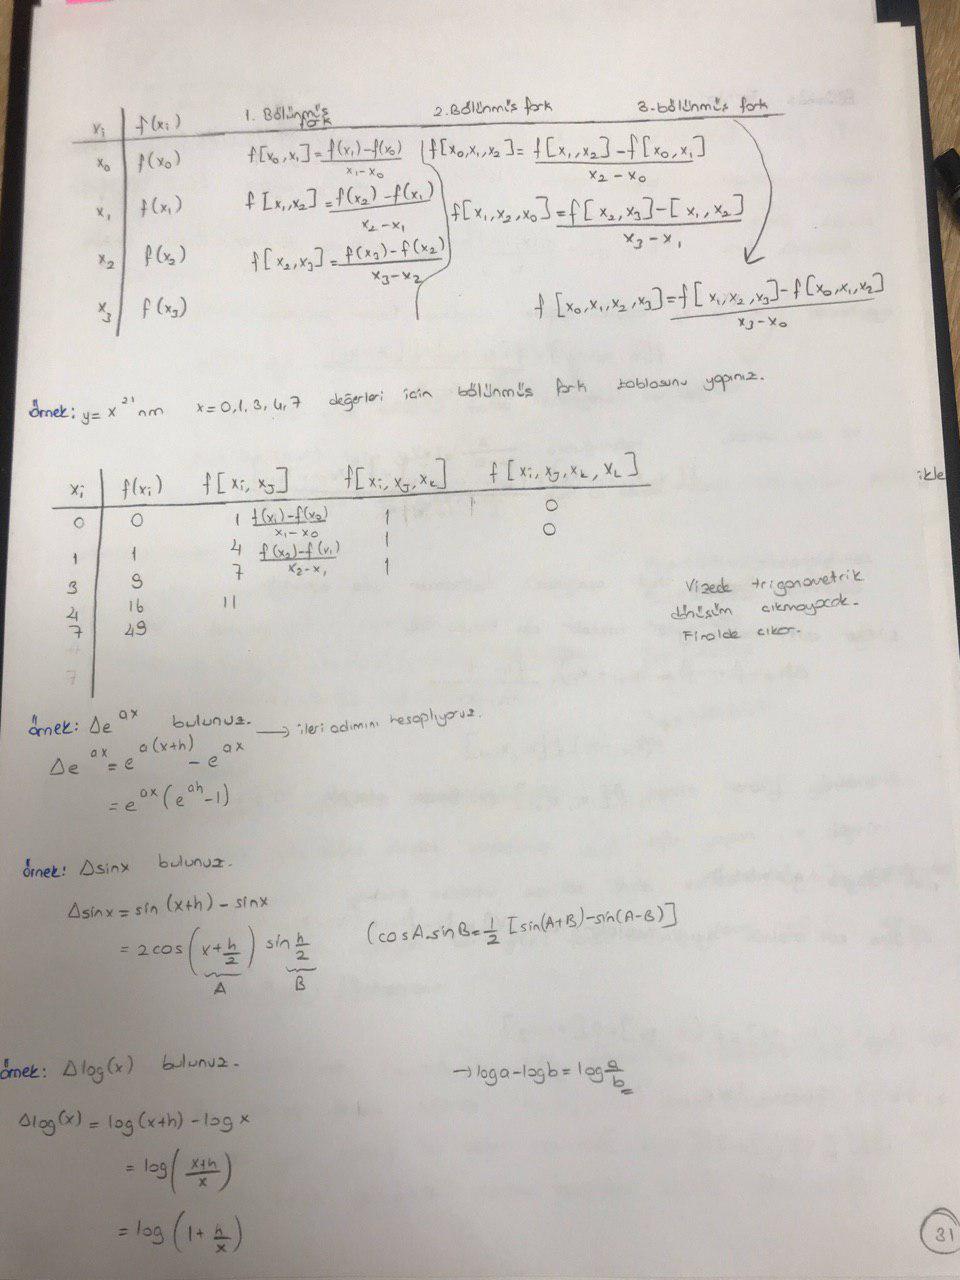 xi f(xi) 1. Bölünmüş fark 2. Bölünmüş fark 3. bölünmüş fark
x₀ f(x₀) f[x₀,x₁] = (f(x₁)-f(x₀))/(x₁-x₀) f[x₀,x₁,x₂] = (f[x₁,x₂]-f[x₀,x₁])/(x₂-x₀)
x₁ f(x₁) f[x₁,x₂] = (f(x₂)-f(x₁))/(x₂-x₁) f[x₁,x₂,x₀] = (f[x₂,x₃]-[x₁,x₂])/(x₃-x₁)
x₂ f(x₂) f[x₂,x₃] = (f(x₃)-f(x₂))/(x₃-x₂)
x₃ f(x₃) f[x₀,x₁,x₂,x₃] = (f[x₁,x₂,x₃]-f[x₀,x₁,x₂])/(x₃-x₀)
Örnek: y = x²'nın x = 0,1,3,4,7 değerleri için bölünmüş fark tablosunu yapınız.
ikle
xi f(xi) f[xi,xj] f[xi,xj,xk] f[xi,xj,xk,xL]
0 0 1 (f(x₁)-f(x₀))/(x₁-x₀) 1 0
1 1 4 (f(x₂)-f(x₁))/(x₂-x₁) 1 0
3 9 7 1
4 16 11
7 49
7
Vizede trigonometrik
dönüşüm çıkmayacak.
Finalde çıkar.
Örnek: Δe^(ax) bulunuz. → ileri adımını hesaplıyoruz.
Δe^(ax) = e^(a(x+h)) - e^(ax)
= e^(ax) (e^(ah) - 1)
Örnek: Δsinx bulunuz.
Δsinx = sin(x+h) - sinx
= 2cos(x+h/2) sin h/2 (cosA.sinB = 1/2 [sin(A+B)-sin(A-B)]
A B
Örnek: Δlog(x) bulunuz. → loga-logb = log a/b
Δlog(x) = log(x+h) - logx
= log((x+h)/x)
= log(1+h/x)
31